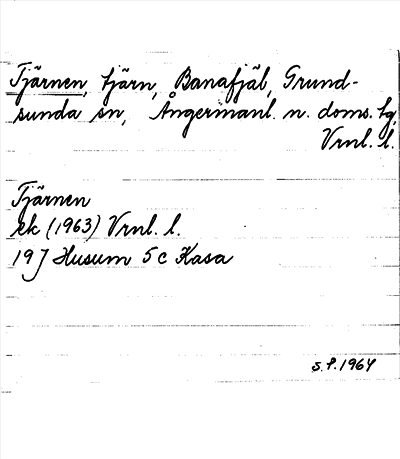 Tjärnen, tjärn, Banafjäl, Grund-
sunda sn, Ångermanl. n. doms. tg,
Vrnl. l.
Tjärnen
ek (1963) Vrnl. l.
19 J Husum 5 c Kasa
s. f. 1964